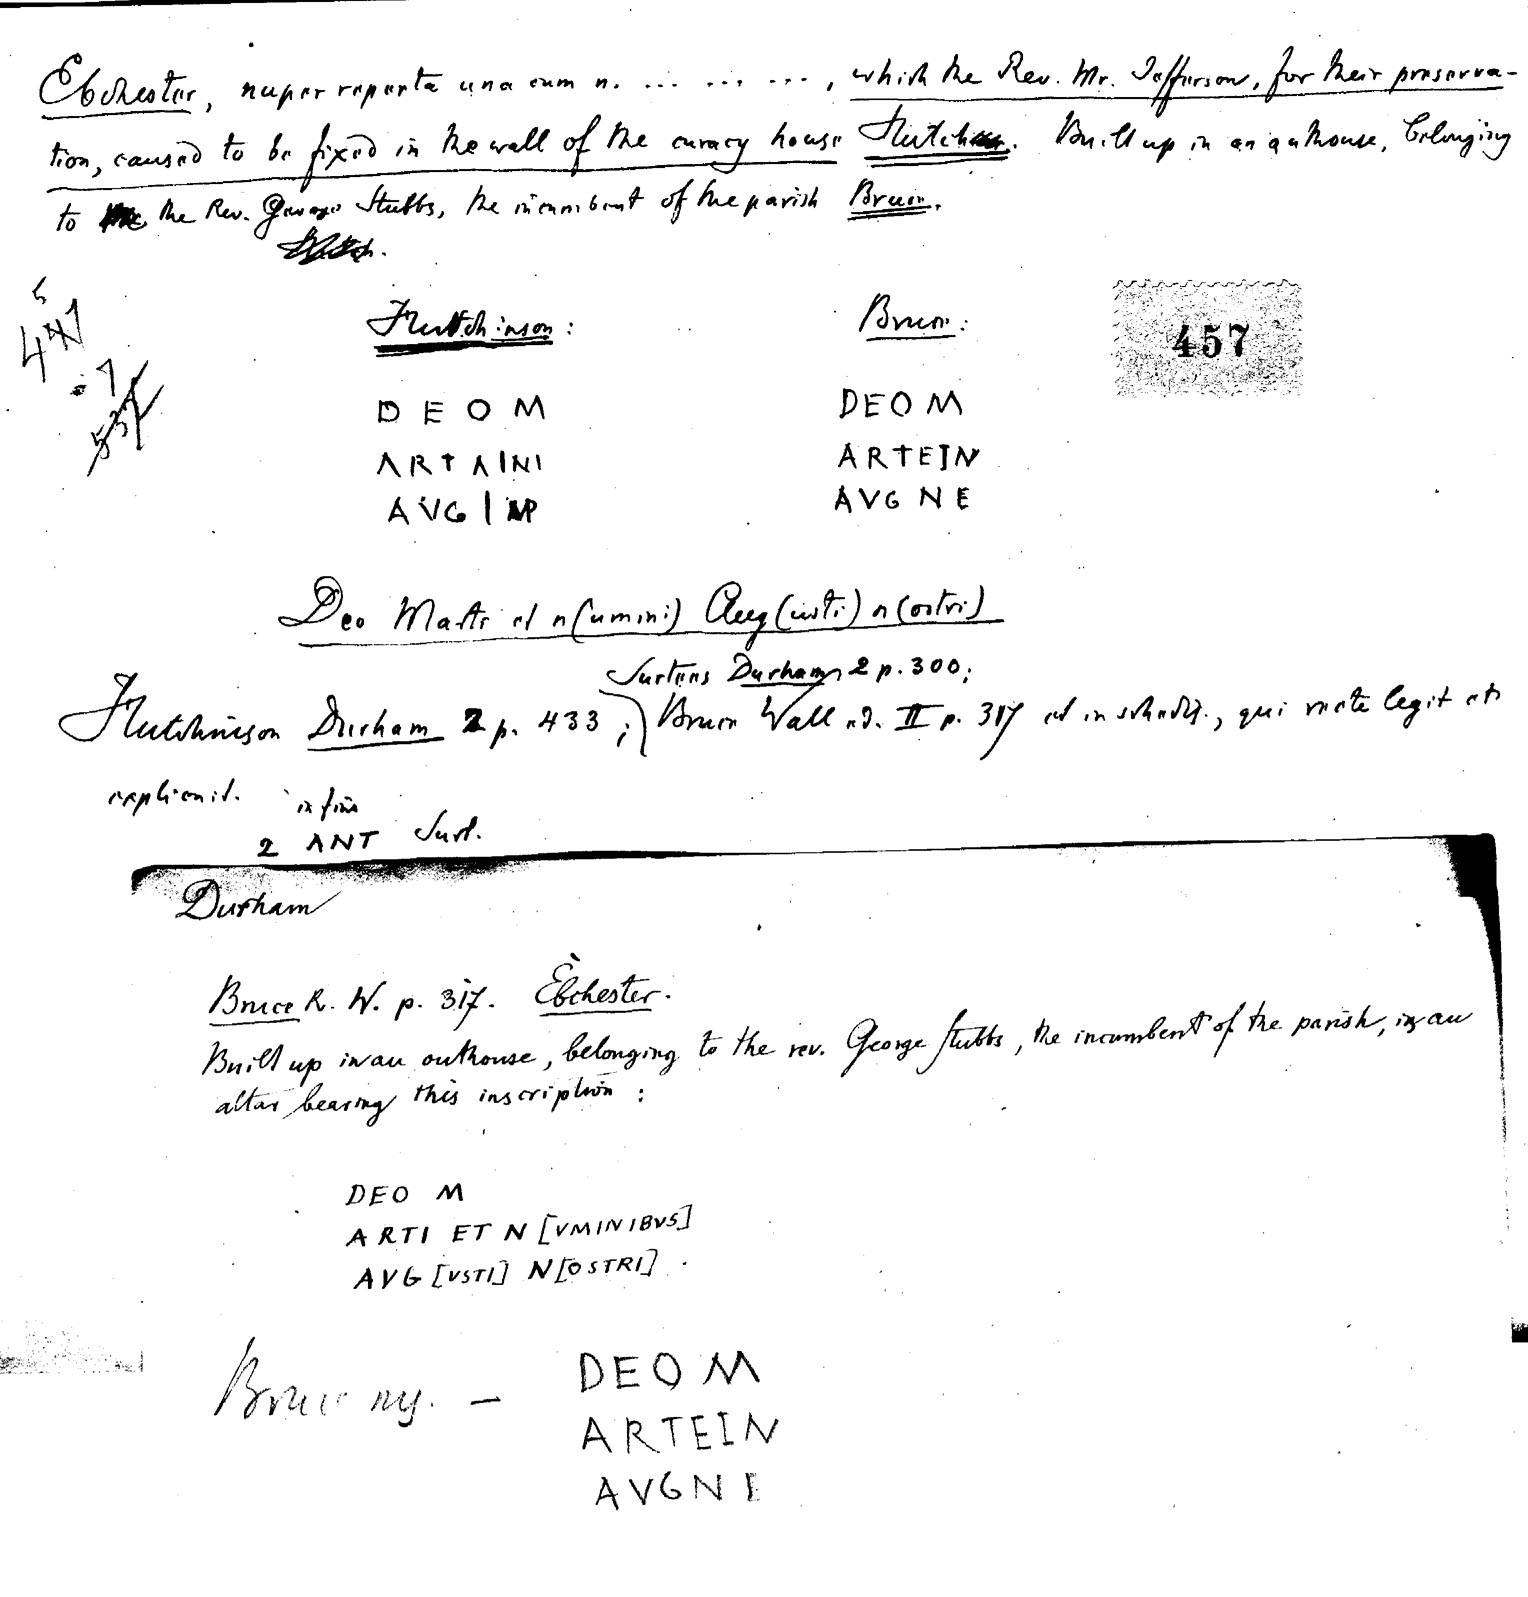 Ebchester, nuper reperta una cum n. ... ... ..., which the Rev. Mr. Jefferson, for their preserva-
tion, caused to be fixed in the wall of the curacy house Hutch. Built up in an outhouse, belonging
to the Rev. George Stubbs, the incumbent of the parish Bruce.
Hutchinson: Bruce:
457
447
537
DEOM DEOM
ARTAINI ARTEIN
AVG AVGNE
Deo Marti et n(umini) Aug(usti) n(ostri)
Surtees Durham 2 p. 300;
Hutchinson Durham 2 p. 433; Bruce Wall ed. II p. 317 et in schedis, qui recte legit et
explicuit. in fine
2 ANT Surt.
Durham
Bruce R. W. p. 317. Ebchester.
Built up in an outhouse, belonging to the rev. George Stubbs, the incumbent of the parish, is an
altar bearing this inscription:
DEO M
ARTI ET N [VMINIBVS]
AVG [VSTI] N[OSTRI].
Bruce – DEOM
ARTEIN
AVGNE